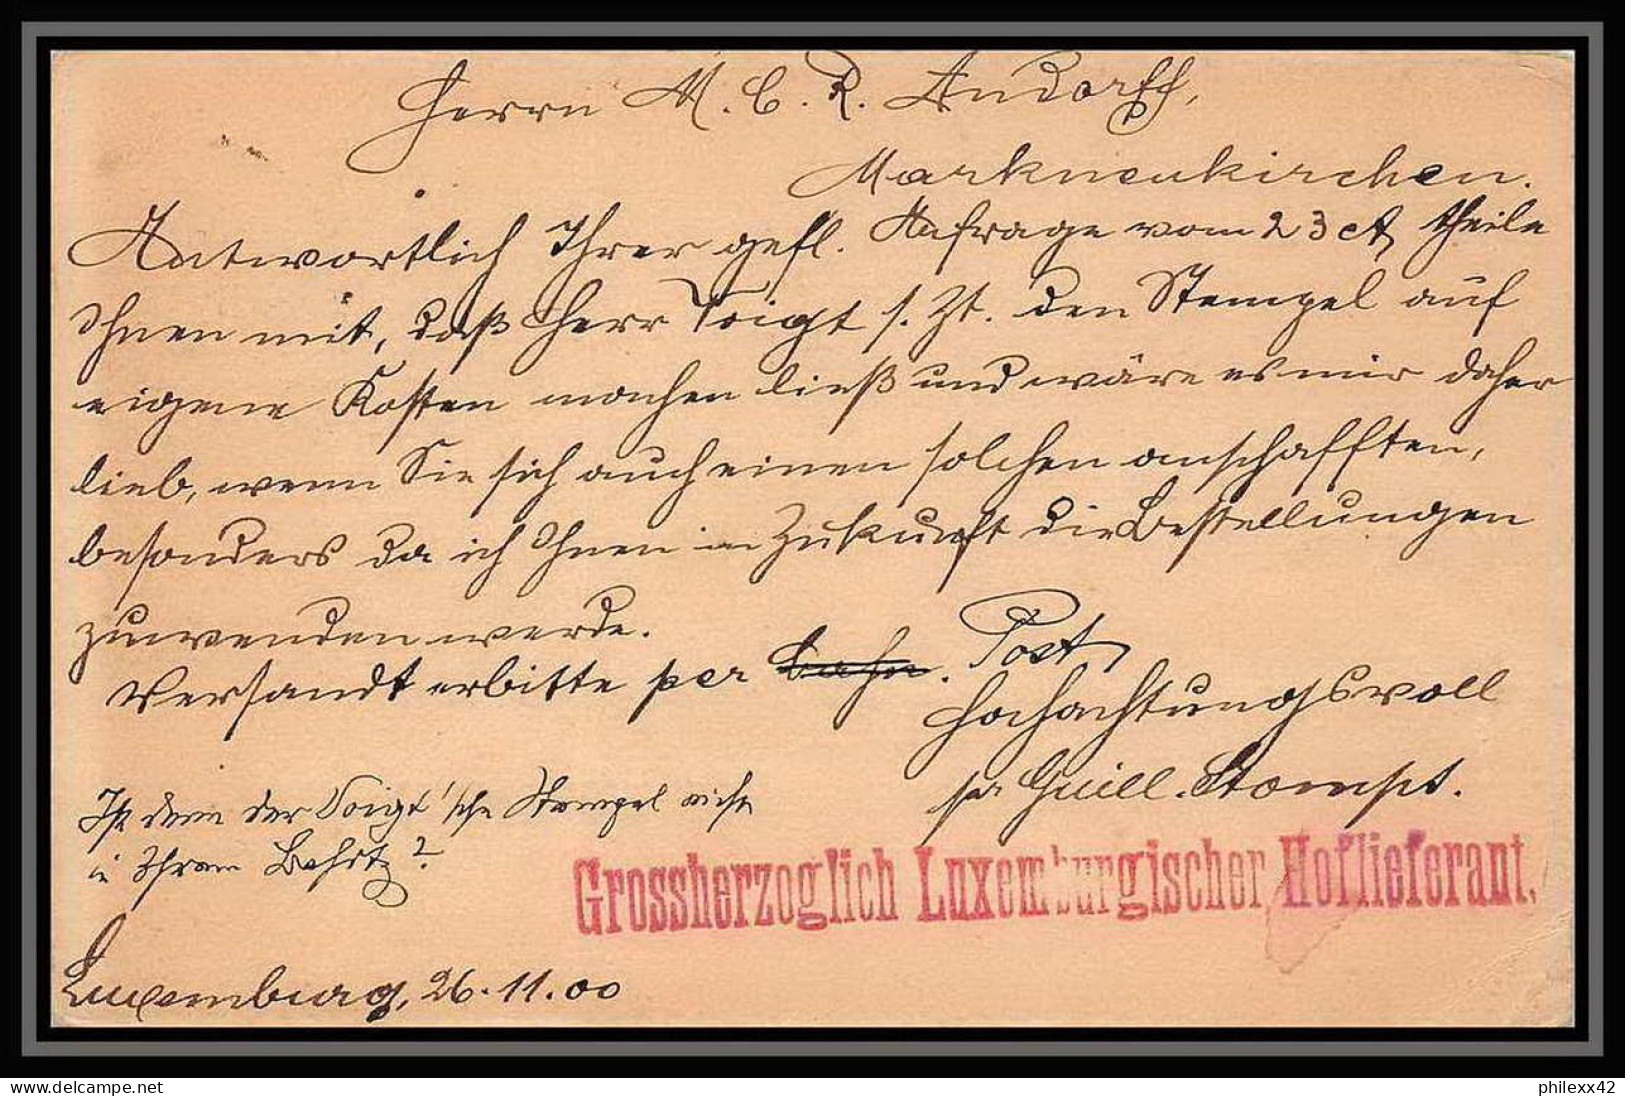 Herrn M. C. R. Andorff,
Markneukirchen.
Antwortlich Ihrer gefl. Anfrage vom 23 ct theile
Ihnen mit, daß Herr Voigt s. Zt. den Stempel auf
eigene Kosten machen ließ und wäre es mir daher
lieb, wenn Sie sich auch einen solchen anschafften,
besonders da ich Ihnen in Zukunft die Bestellungen
zuwenden werde.
Versandt erbitte per Bahn. Post
Hochachtungsvoll
pr Guill. Stompt.
Ist denn der Voigt'sche Stempel nicht
in Ihrem Besitz?
Grossherzoglich Luxemburgischer Hoflieferant.
Luxemburg, 26.11.00
philexx42